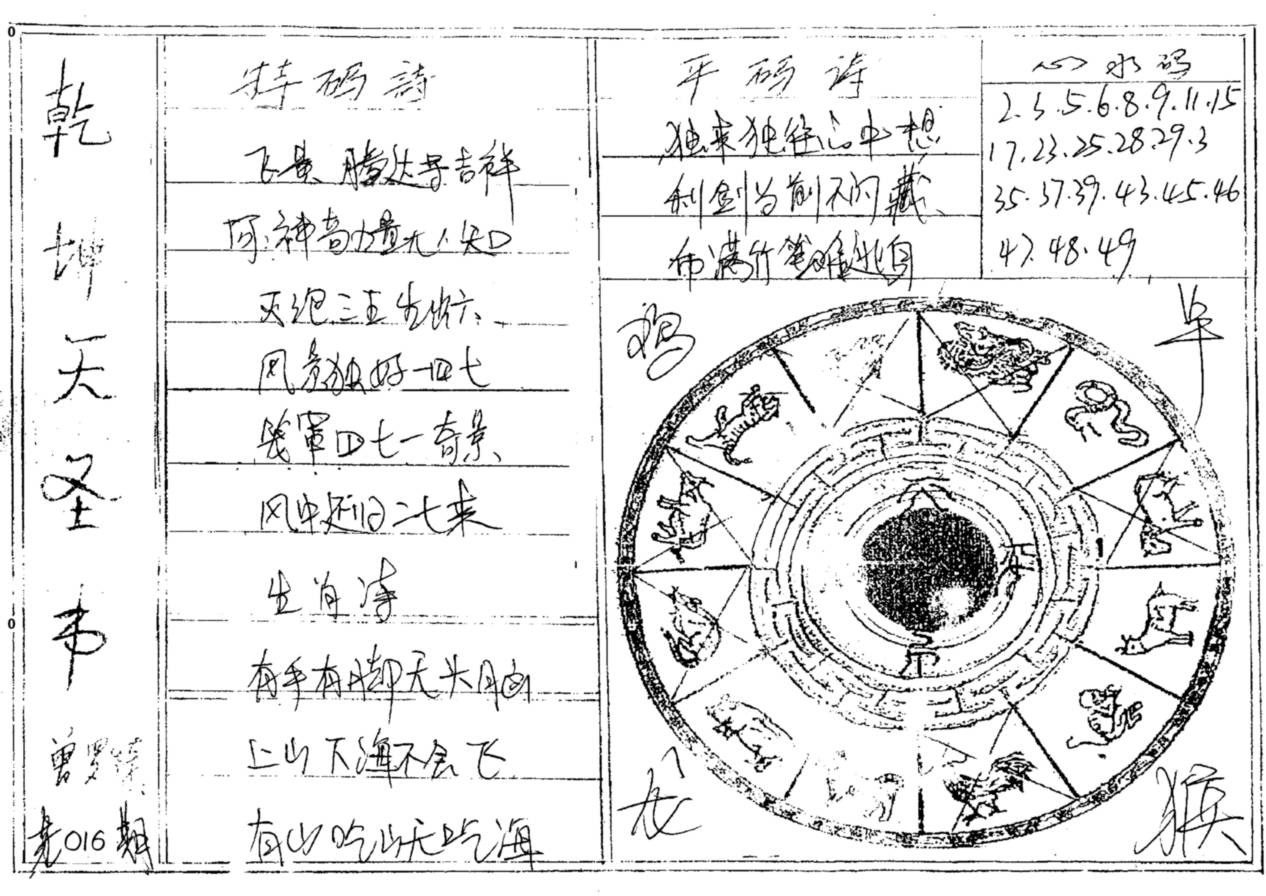 乾坤天圣书
016期
特码詩
飞黄腾达寻吉祥
神高力量无人知
灭绝三王生出六
风景独好一四七
四七一奇景
风中二七来
生肖诗
有手有脚无头脑
上山下海不会飞
有山吃山无吃海
平码诗
独来独往心中想
利剑当前不闪藏
布满竹
心水码
2.3.5.6.8.9.11.15
17.23.25.28.29.3
35.37.39.43.45.46
47.48.49
鸡
羊
龙
猴